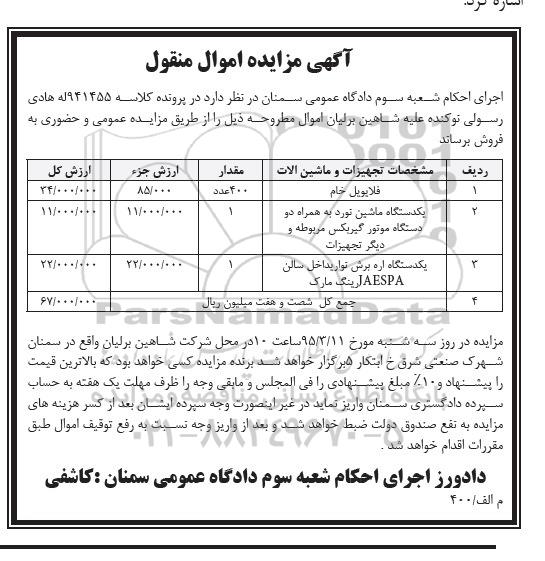 آگهی مزایده اموال منقول
اجرای احکام شعبه سوم دادگاه عمومی سمنان در نظر دارد در پرونده کلاسه ۹۴۱۴۵۵له هادی
رسولی نوکنده علیه شاهین برلیان اموال مطروحه ذیل را از طریق مزایده عمومی و حضوری به
فروش برساند
ردیف مشخصات تجهیزات و ماشین الات مقدار ارزش جزء ارزش کل
۱ فلایویل خام ۴۰۰عدد ۸۵/۰۰۰ ۳۴/۰۰۰/۰۰۰
۲ یکدستگاه ماشین نورد به همراه دو ۱ ۱۱/۰۰۰/۰۰۰ ۱۱/۰۰۰/۰۰۰
دستگاه موتور گیربکس مربوطه و
دیگر تجهیزات
۳ یکدستگاه اره برش نواریداخل سالن ۱ ۲۲/۰۰۰/۰۰۰ ۲۲/۰۰۰/۰۰۰
JAESPAرینگ مارک
۴ جمع کل شصت و هفت میلیون ریال ۶۷/۰۰۰/۰۰۰
ParsNamadData
مزایده در روز سه شنبه مورخ ۹۵/۳/۱۱ساعت ۱۰در محل شرکت شاهین برلیان واقع در سمنان
شهرک صنعتی شرق خ ابتکار ۵برگزار خواهد شد برنده مزایده کسی خواهد بود که بالاترین قیمت
را پیشنهاد و۱۰٪ مبلغ پیشنهادی را فی المجلس و مابقی وجه را ظرف مهلت یک هفته به حساب
سپرده دادگستری سمنان واریز نماید در غیر اینصورت وجه سپرده ایشان بعد از کسر هزینه های
مزایده به نفع صندوق دولت ضبط خواهد شد و بعد از واریز وجه نسبت به رفع توقیف اموال طبق
مقررات اقدام خواهد شد .
دادورز اجرای احکام شعبه سوم دادگاه عمومی سمنان :کاشفی
م الف/۴۰۰